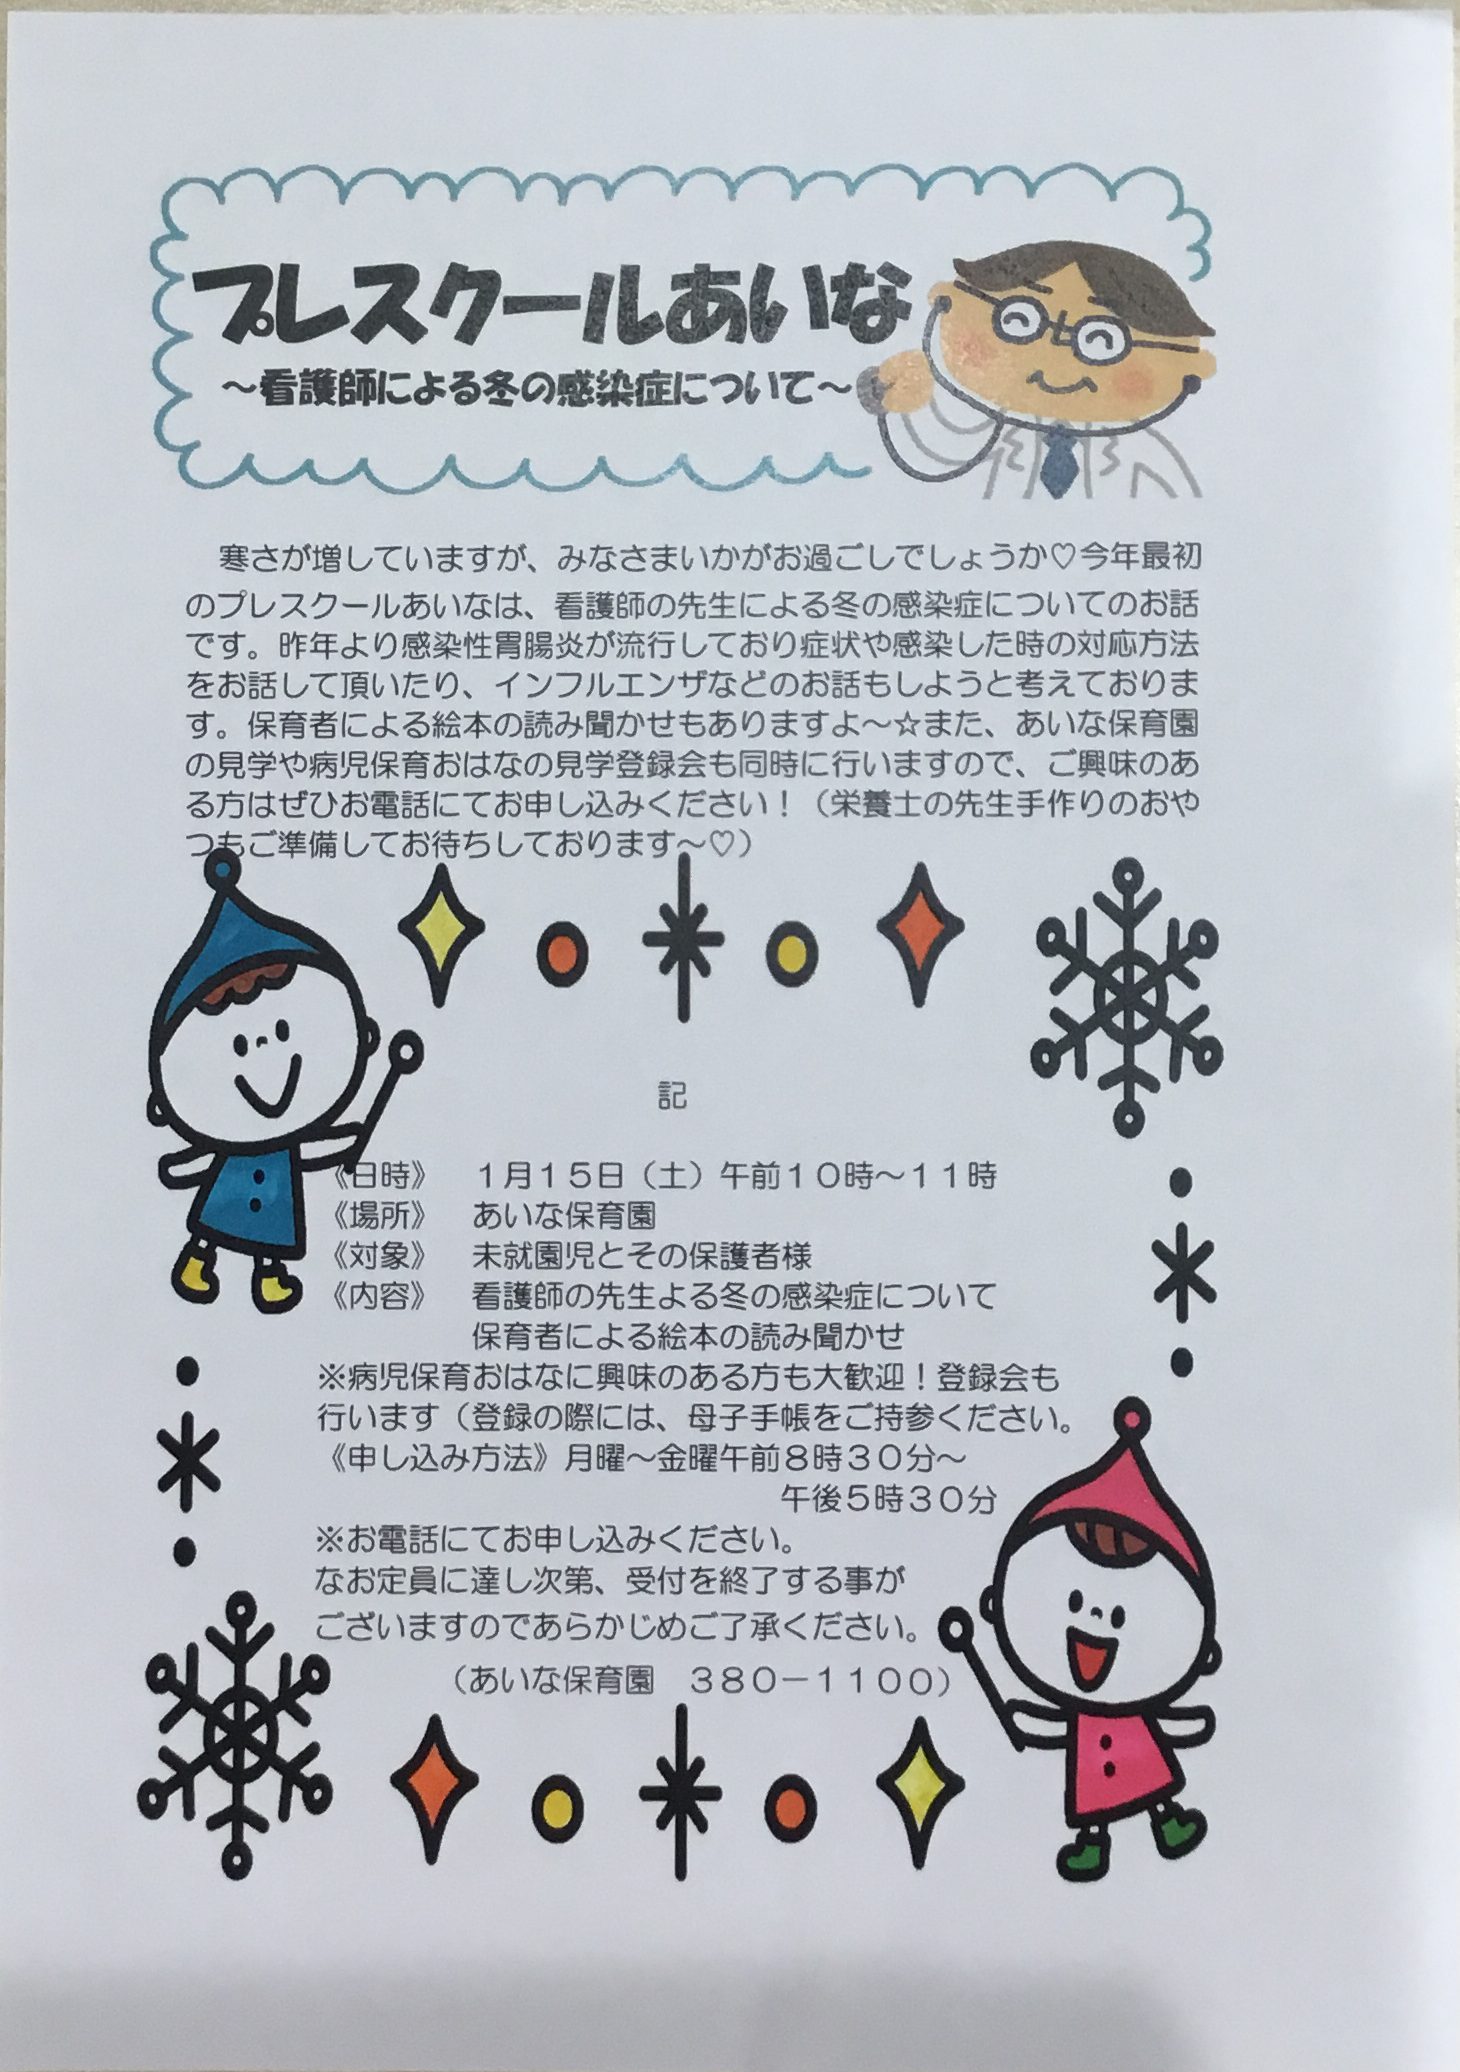 プレスクールあいな
～看護師による冬の感染症について～
寒さが増していますが、みなさまいかがお過ごしでしょうか♡今年最初
のプレスクールあいなは、看護師の先生による冬の感染症についてのお話
です。昨年より感染性胃腸炎が流行しており症状や感染した時の対応方法
をお話して頂いたり、インフルエンザなどのお話もしようと考えておりま
す。保育者による絵本の読み聞かせもありますよ～☆また、あいな保育園
の見学や病児保育おはなの見学登録会も同時に行いますので、ご興味のあ
る方はぜひお電話にてお申し込みください！（栄養士の先生手作りのおや
つもご準備してお待ちしております～♡）
記
《日時》　１月１５日（土）午前１０時～１１時
《場所》　あいな保育園
《対象》　未就園児とその保護者様
《内容》　看護師の先生よる冬の感染症について
保育者による絵本の読み聞かせ
※病児保育おはなに興味のある方も大歓迎！登録会も
行います（登録の際には、母子手帳をご持参ください。
《申し込み方法》月曜～金曜午前８時３０分～
午後５時３０分
※お電話にてお申し込みください。
なお定員に達し次第、受付を終了する事が
ございますのであらかじめご了承ください。
（あいな保育園　３８０－１１００）